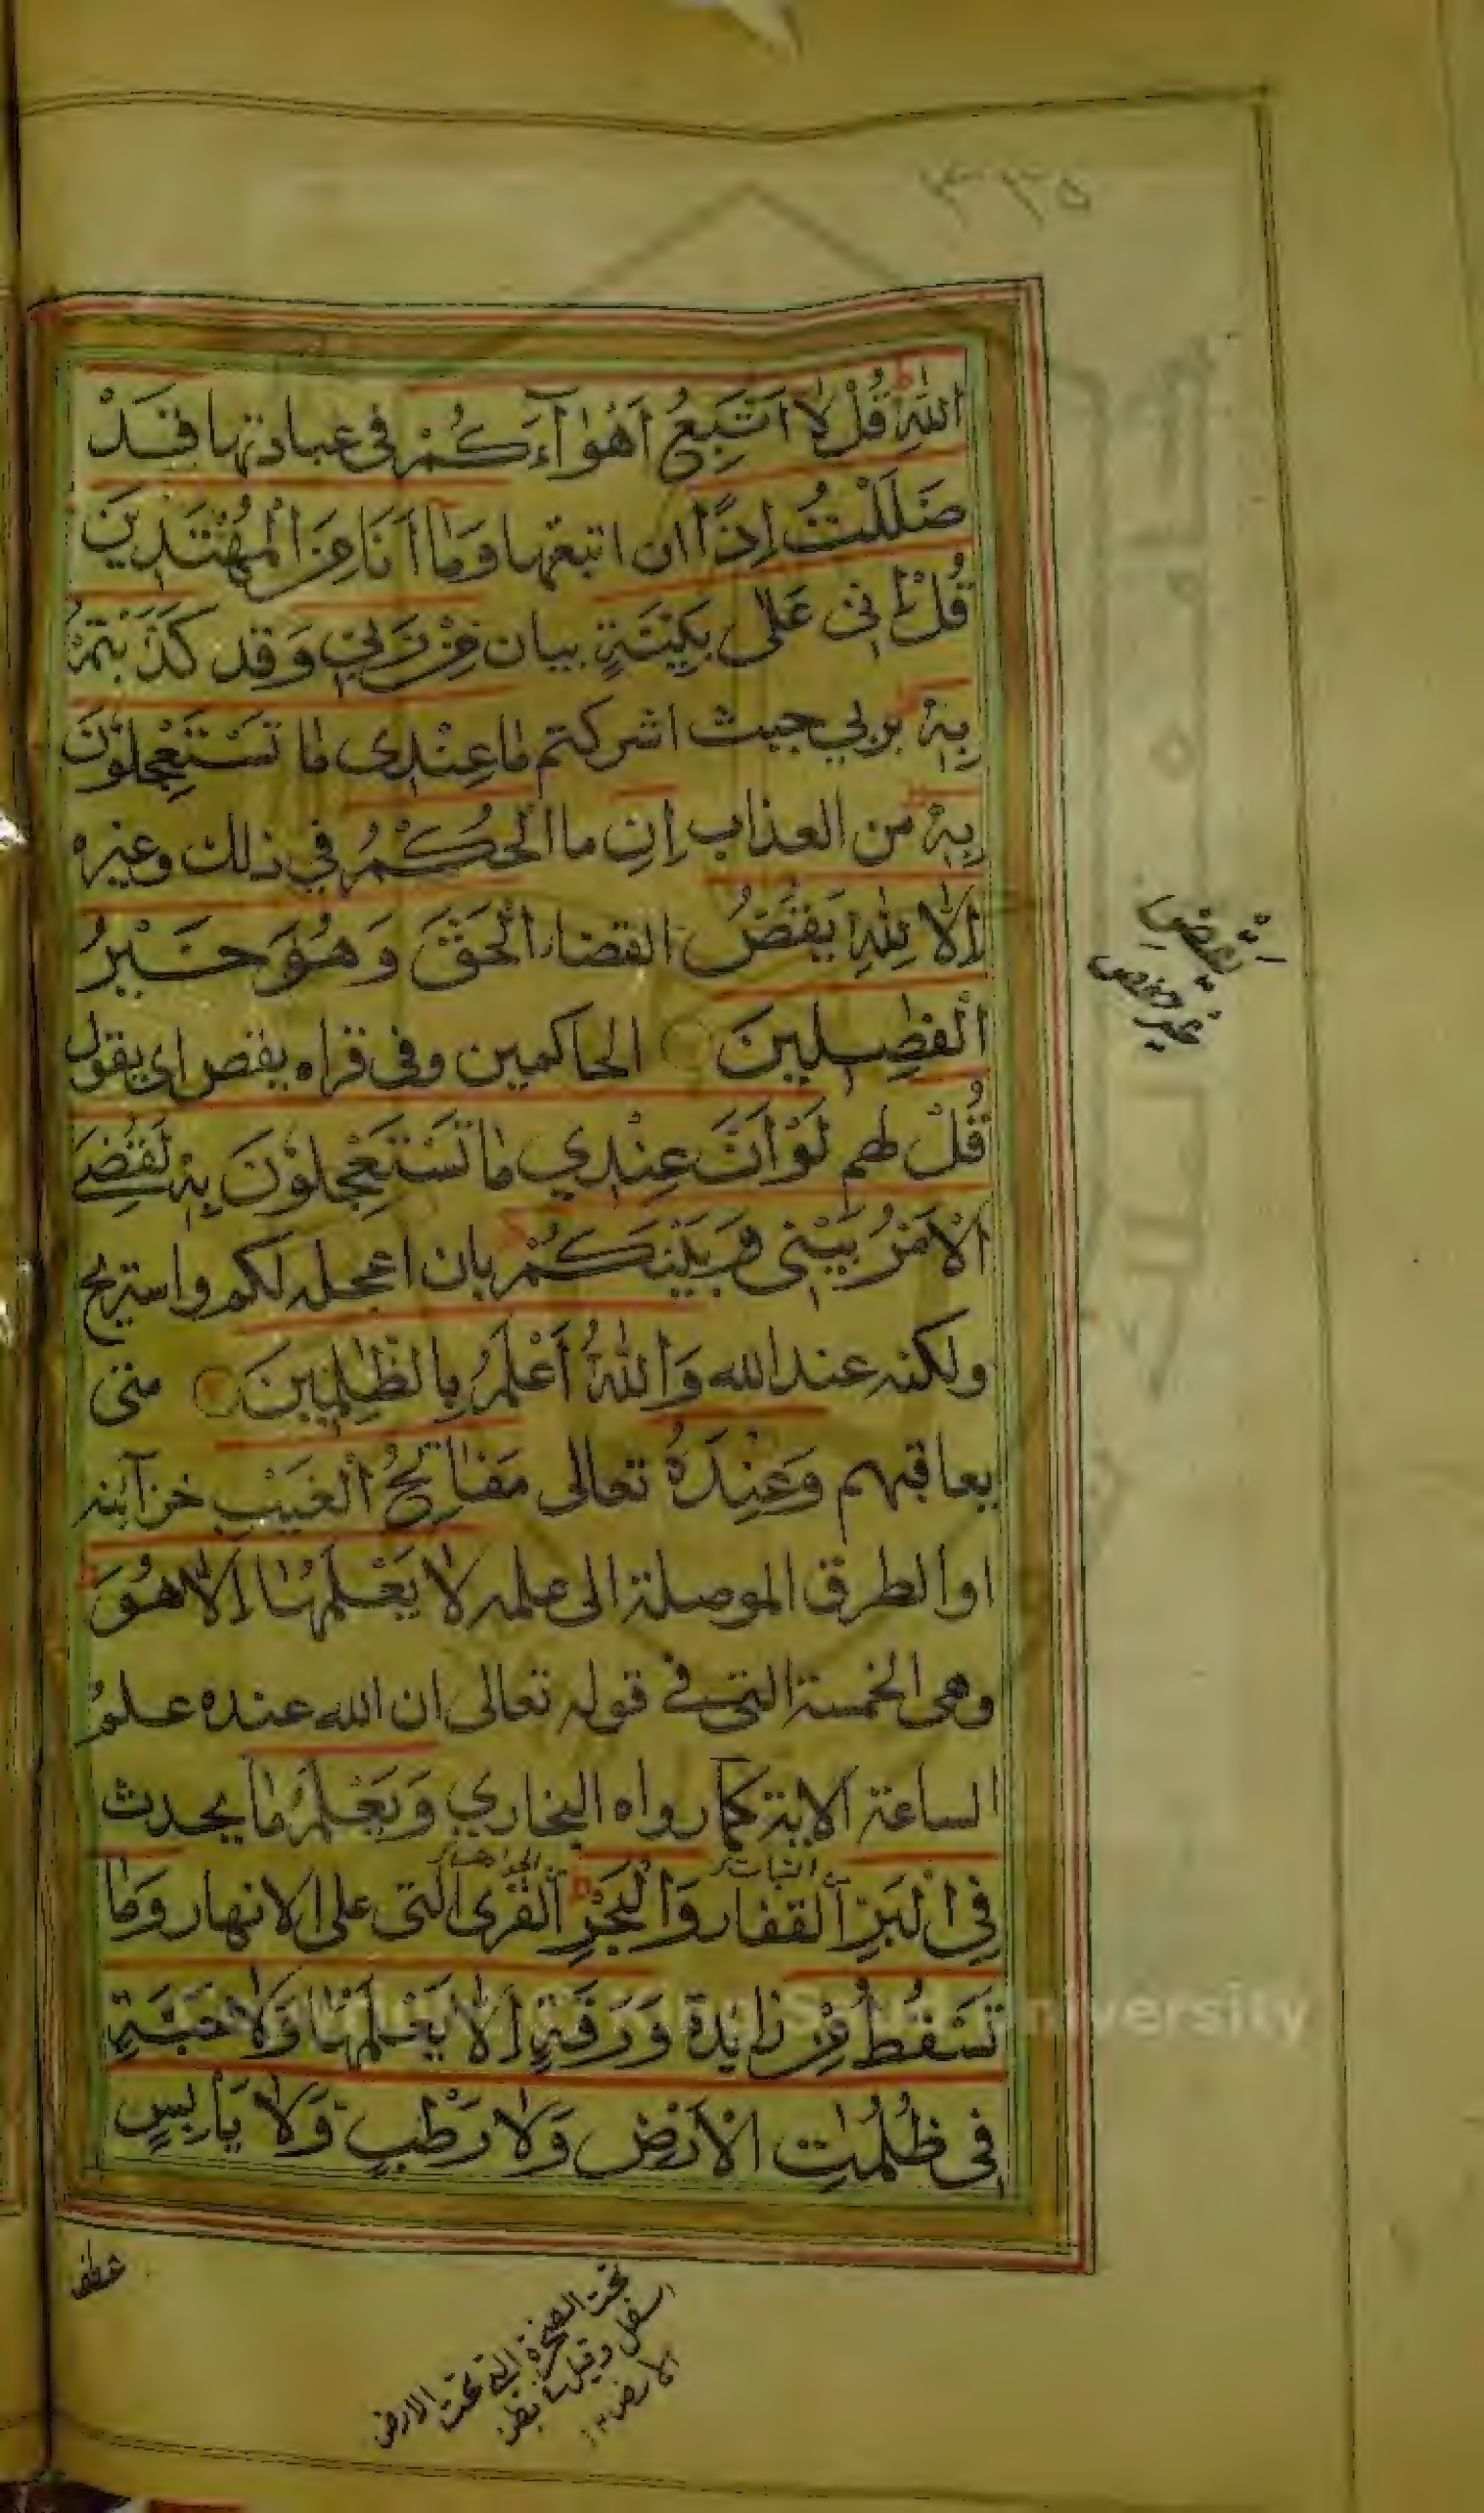 ٣٣٥
اللهِ قُلْ لَا اَتَّبِعُ اَهْوَآءَكُمْ في عبادتها قَدْ
ضَلَلْتُ اِذًا ان اتبعتها وَمَا اَنَا مِنَ الْمُهْتَدِيْنَ
قُلْ اِنِّى عَلٰى بَيِّنَةٍ بيان مِنْ رَبِّي وَ قد كَذَّبْتُمْ
بِهٖ بربي حيث اشركتم مَا عِنْدِى مَا تَسْتَعْجِلُوْنَ
بِهٖ من العذاب اِنِ ما الْحُكْمُ في ذلك وغيره
اِلَّا لِلّٰهِ يَقْضُ القضاء الْحَقَّ وَهُوَ خَيْرُ
الْفٰصِلِيْنَ الحاكمين وفى قراه يقص اى يقول
قُلْ لهم لَوْ اَنَّ عِنْدِي مَا تَسْتَعْجِلُوْنَ بِهٖ لَقُضِيَ
الْاَمْرُ بَيْنِى وَبَيْنَكُمْ بان اعجله لكم واستريح
ولكنه عند الله وَاللّٰهُ اَعْلَمُ بِالظّٰلِمِيْنَ متى
يعاقبهم وَعِنْدَهٗ تعالى مَفَاتِحُ الْغَيْبِ خزآئنه
او الطرق الموصلة الى علمه لَا يَعْلَمُهَا اِلَّا هُوَ
وهى الخمسة التى في قوله تعالى ان الله عنده علمُ
الساعة الاية كما رواه البخاري وَيَعْلَمُ مَا يحدث
فِي الْبَرِّ القفار وَالْبَحْرِ القرى التى على الانهار وَمَا
النبات
تَسْقُطُ مِنْ زائدة وَرَقَةٍ اِلَّا يَعْلَمُهَا وَلَا حَبَّةٍ
فِى ظُلُمٰتِ الْاَرْضِ وَلَا رَطْبٍ وَلَا يَابِسٍ
يَقْضِ
غير حفص
عطف
تحت الصخرة التى تحت الارض
اسفل وقيل
الارض ١٢
King Saud University